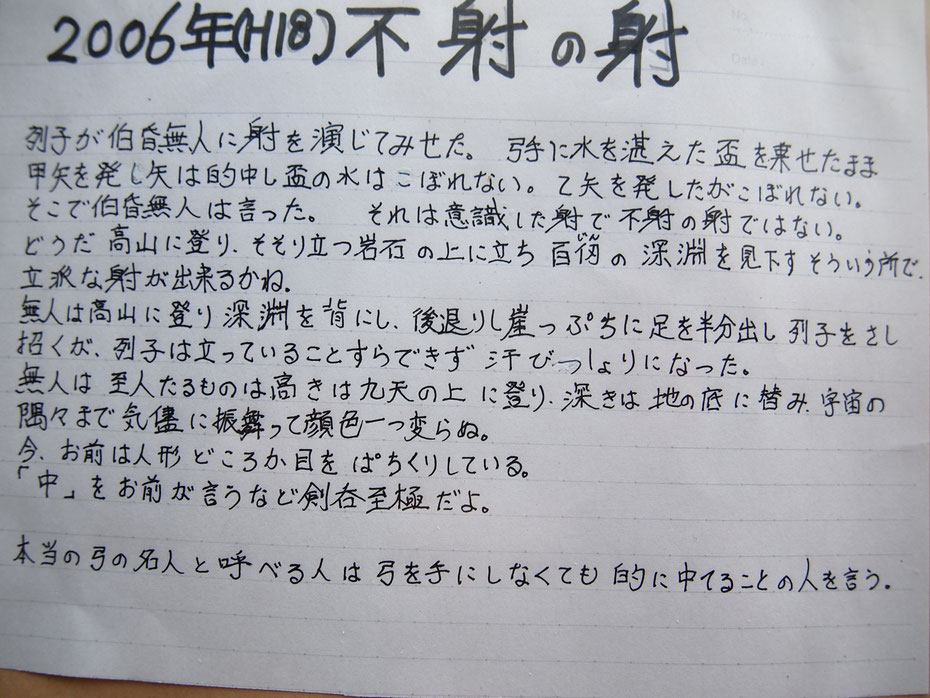 2006年(H18)不射の射
列子が伯昏無人に射を演じてみせた。 弓手に水を湛えた盃を乗せたまま
甲矢を発し矢は的中し盃の水はこぼれない。乙矢を発したがこぼれない。
そこで伯昏無人は言った。 それは意識した射で不射の射ではない。
どうだ高山に登り、そそり立つ岩石の上に立ち百仭(じん)の深淵を見下すそういう所で、
立派な射が出来るかね。
無人は高山に登り深淵を背にし、後退りし崖っぷちに足を半分出し列子をさし
招くが、列子は立っていることすらできず汗びっしょりになった。
無人は至人たるものは高きは九天の上に登り、深きは地の底に替み、宇宙の
隅々まで気儘に振舞って顔色一つ変らぬ。
今、お前は人形どころか目をぱちくりしている。
「中」をお前が言うなど剣呑至極だよ。
本当の弓の名人と呼べる人は弓を手にしなくても的に中てることの人を言う。